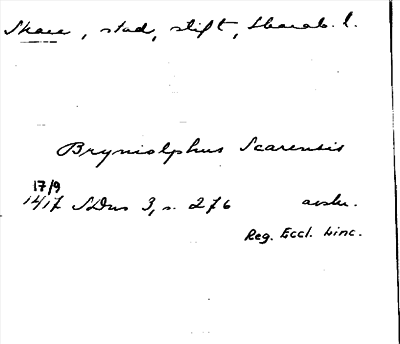 Skara, stad, stift, Skarab. l.
Bryniolphus Scarensis
17/9
1417 SDns 3, s. 276 avskr.
Reg. Eccl. Linc.